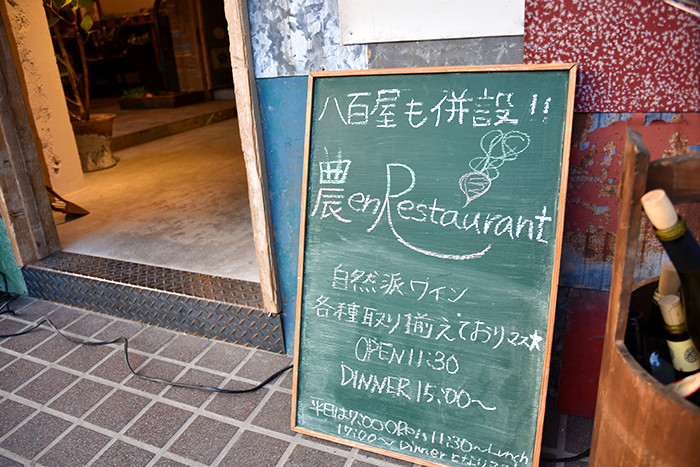 八百屋も併設!!
農en Restaurant
自然派ワイン
各種取り揃えておりマス★
OPEN 11:30
DINNER 15:00〜
平日は7:00 OPEN 11:30〜Lunch
17:00〜Dinnerとなります